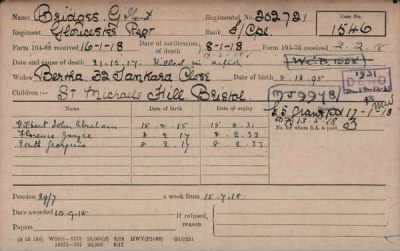 Name Bridges G.
Regimental No. 202721
Case No. 1546
Regiment Gloucester Regt
Rank L/Cpl.
Form 104-88 received 16-1-18
Date of notification, of death 8-1-18
Form 104-76 received 2.2.18
Date and cause of death 21.12.17. Killed in action
Widow Bertha, 32 Tankards Close
Date of birth 5.12.95
Children:— St Michaels Hill, Bristol
1931
Date of birth
Date of expiry
Gilbert John Abraham 15.2.15 15.2.31
Florence Joyce 8.2.17 8.2.33
Ruth Georgina 8.2.17 8.2.33
£5 Grant pd 17-1-18
No. for whom S.A. is paid 3
Pension 29/7 a week from 15.7.18
Date awarded 10.4.18
If refused, reason
Papers